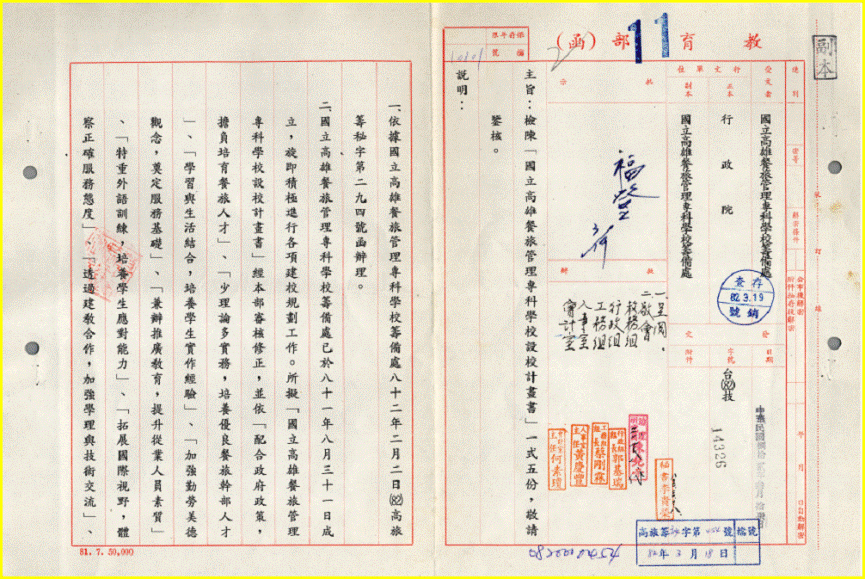 副本
教育部（函）
11
保存年限
號
檔
受文者
國立高雄餐旅管理專科學校籌備處
行文單位
正本
行政院
副本
國立高雄餐旅管理專科學校籌備處
批示
擬辦
發文
日期
字號
附件
台(82)技
14326
存查
82.3.19
號銷
主旨：檢陳「國立高雄餐旅管理專科學校設校計畫書」一式五份，敬請
鑒核。
說明：
一、依據國立高雄餐旅管理專科學校籌備處八十二年二月二日(82)高旅
籌秘字第二九四號函辦理。
二、國立高雄餐旅管理專科學校籌備處已於八十一年八月三十一日成
立，旋即積極進行各項建校規劃工作。所擬「國立高雄餐旅管理
專科學校設校計畫書」經本部審核修正，並依「配合政府政策，
擔負培育餐旅人才」、「少理論多實務，培養優良餐旅幹部人才
」、「學習與生活結合，培養學生實作經驗」、「加強勤勞美德
觀念，奠定服務基礎」、「兼辦推廣教育，提升從業人員素質」
、「特重外語訓練，培養學生應對能力」、「拓展國際視野，體
察正確服務態度」、「透過建教合作，加強學理與技術交流」、
二敬會
校務組
行政組
工務組
人事室
會計室
組長郭基瑞
組長蔡剛霖
主任黃慶豐
主任何素瓊
高旅籌秘字第 號
檔號
82年3月18日
81.7.50,000